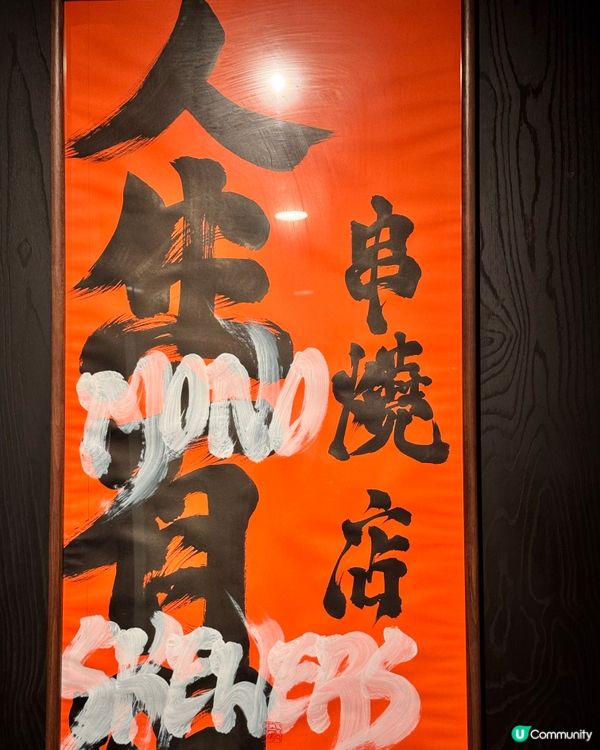 人生有
串燒店
MONO
SKEWERS
U Community